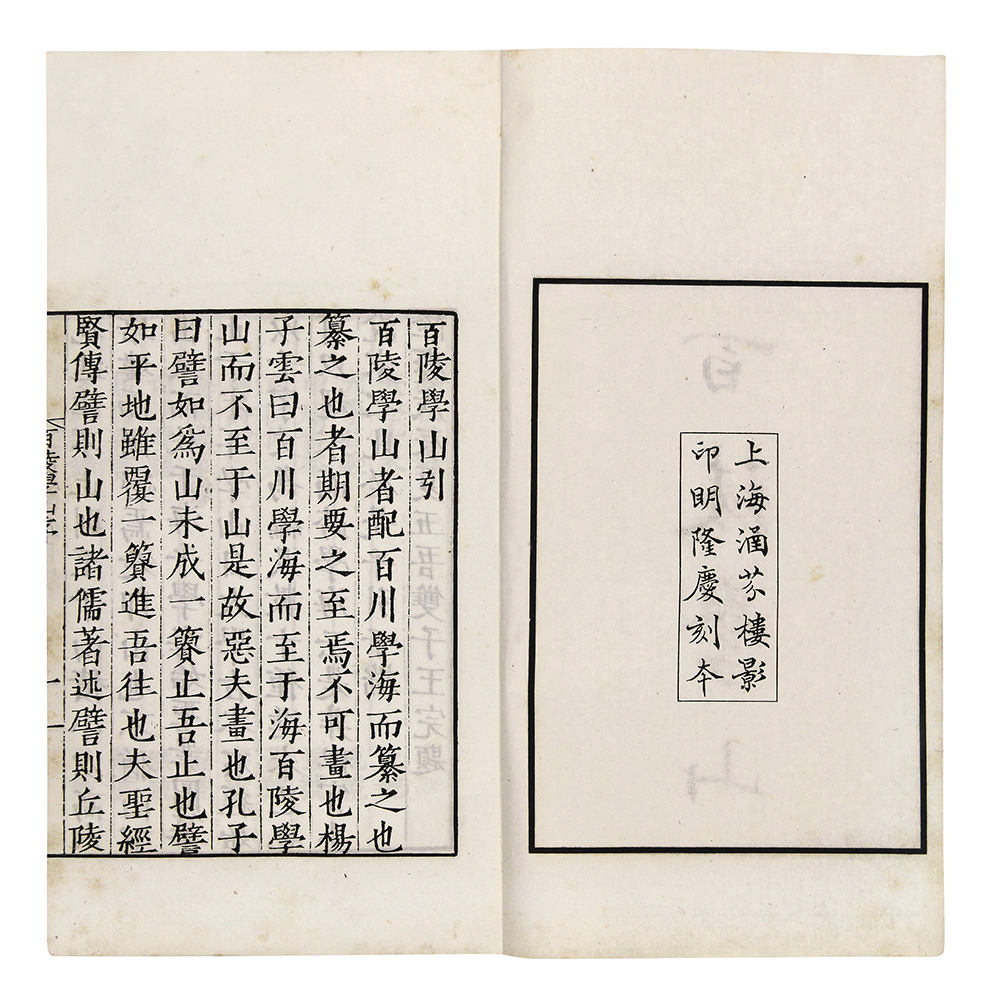 上海涵芬樓影
印明隆慶刻本
百陵學山引
百陵學山者配百川學海而纂之也
纂之也者期要之至焉不可畫也楊
子雲曰百川學海而至于海百陵學
山而不至于山是故惡夫畫也孔子
曰譬如爲山未成一簣止吾止也譬
如平地雖覆一簣進吾往也夫聖經
賢傳譬則山也諸儒著述譬則丘陵